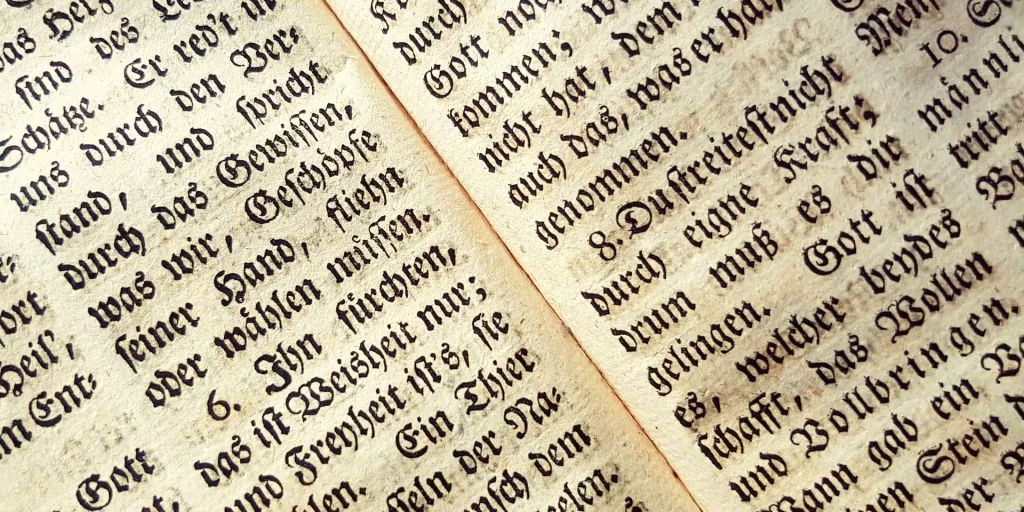 ort
Heil',
m Ent:
Gott
das Herz
sind des
Schätze. Er red't in
uns durch den Ver:
stand, und spricht
durch das Gewissen,
was wir, Geschöpfe
seiner Hand, fliehn
oder wählen müssen.
6. Ihn fürchten,
das ist Weisheit nur;
und Freyheit ist's, sie
Ein Thier
der Na:
dem
durch
Gott noch
kommen;
nicht hat, dem
auch das, was er hat,
genommen.
8. Du streitest nicht
durch eigne Kraft;
drum muß es dir
gelingen. Gott ist
es, welcher beydes
schafft, das Wollen
und Vollbringen.
Wann gab ein
Stein
der
10.
männli
tritt